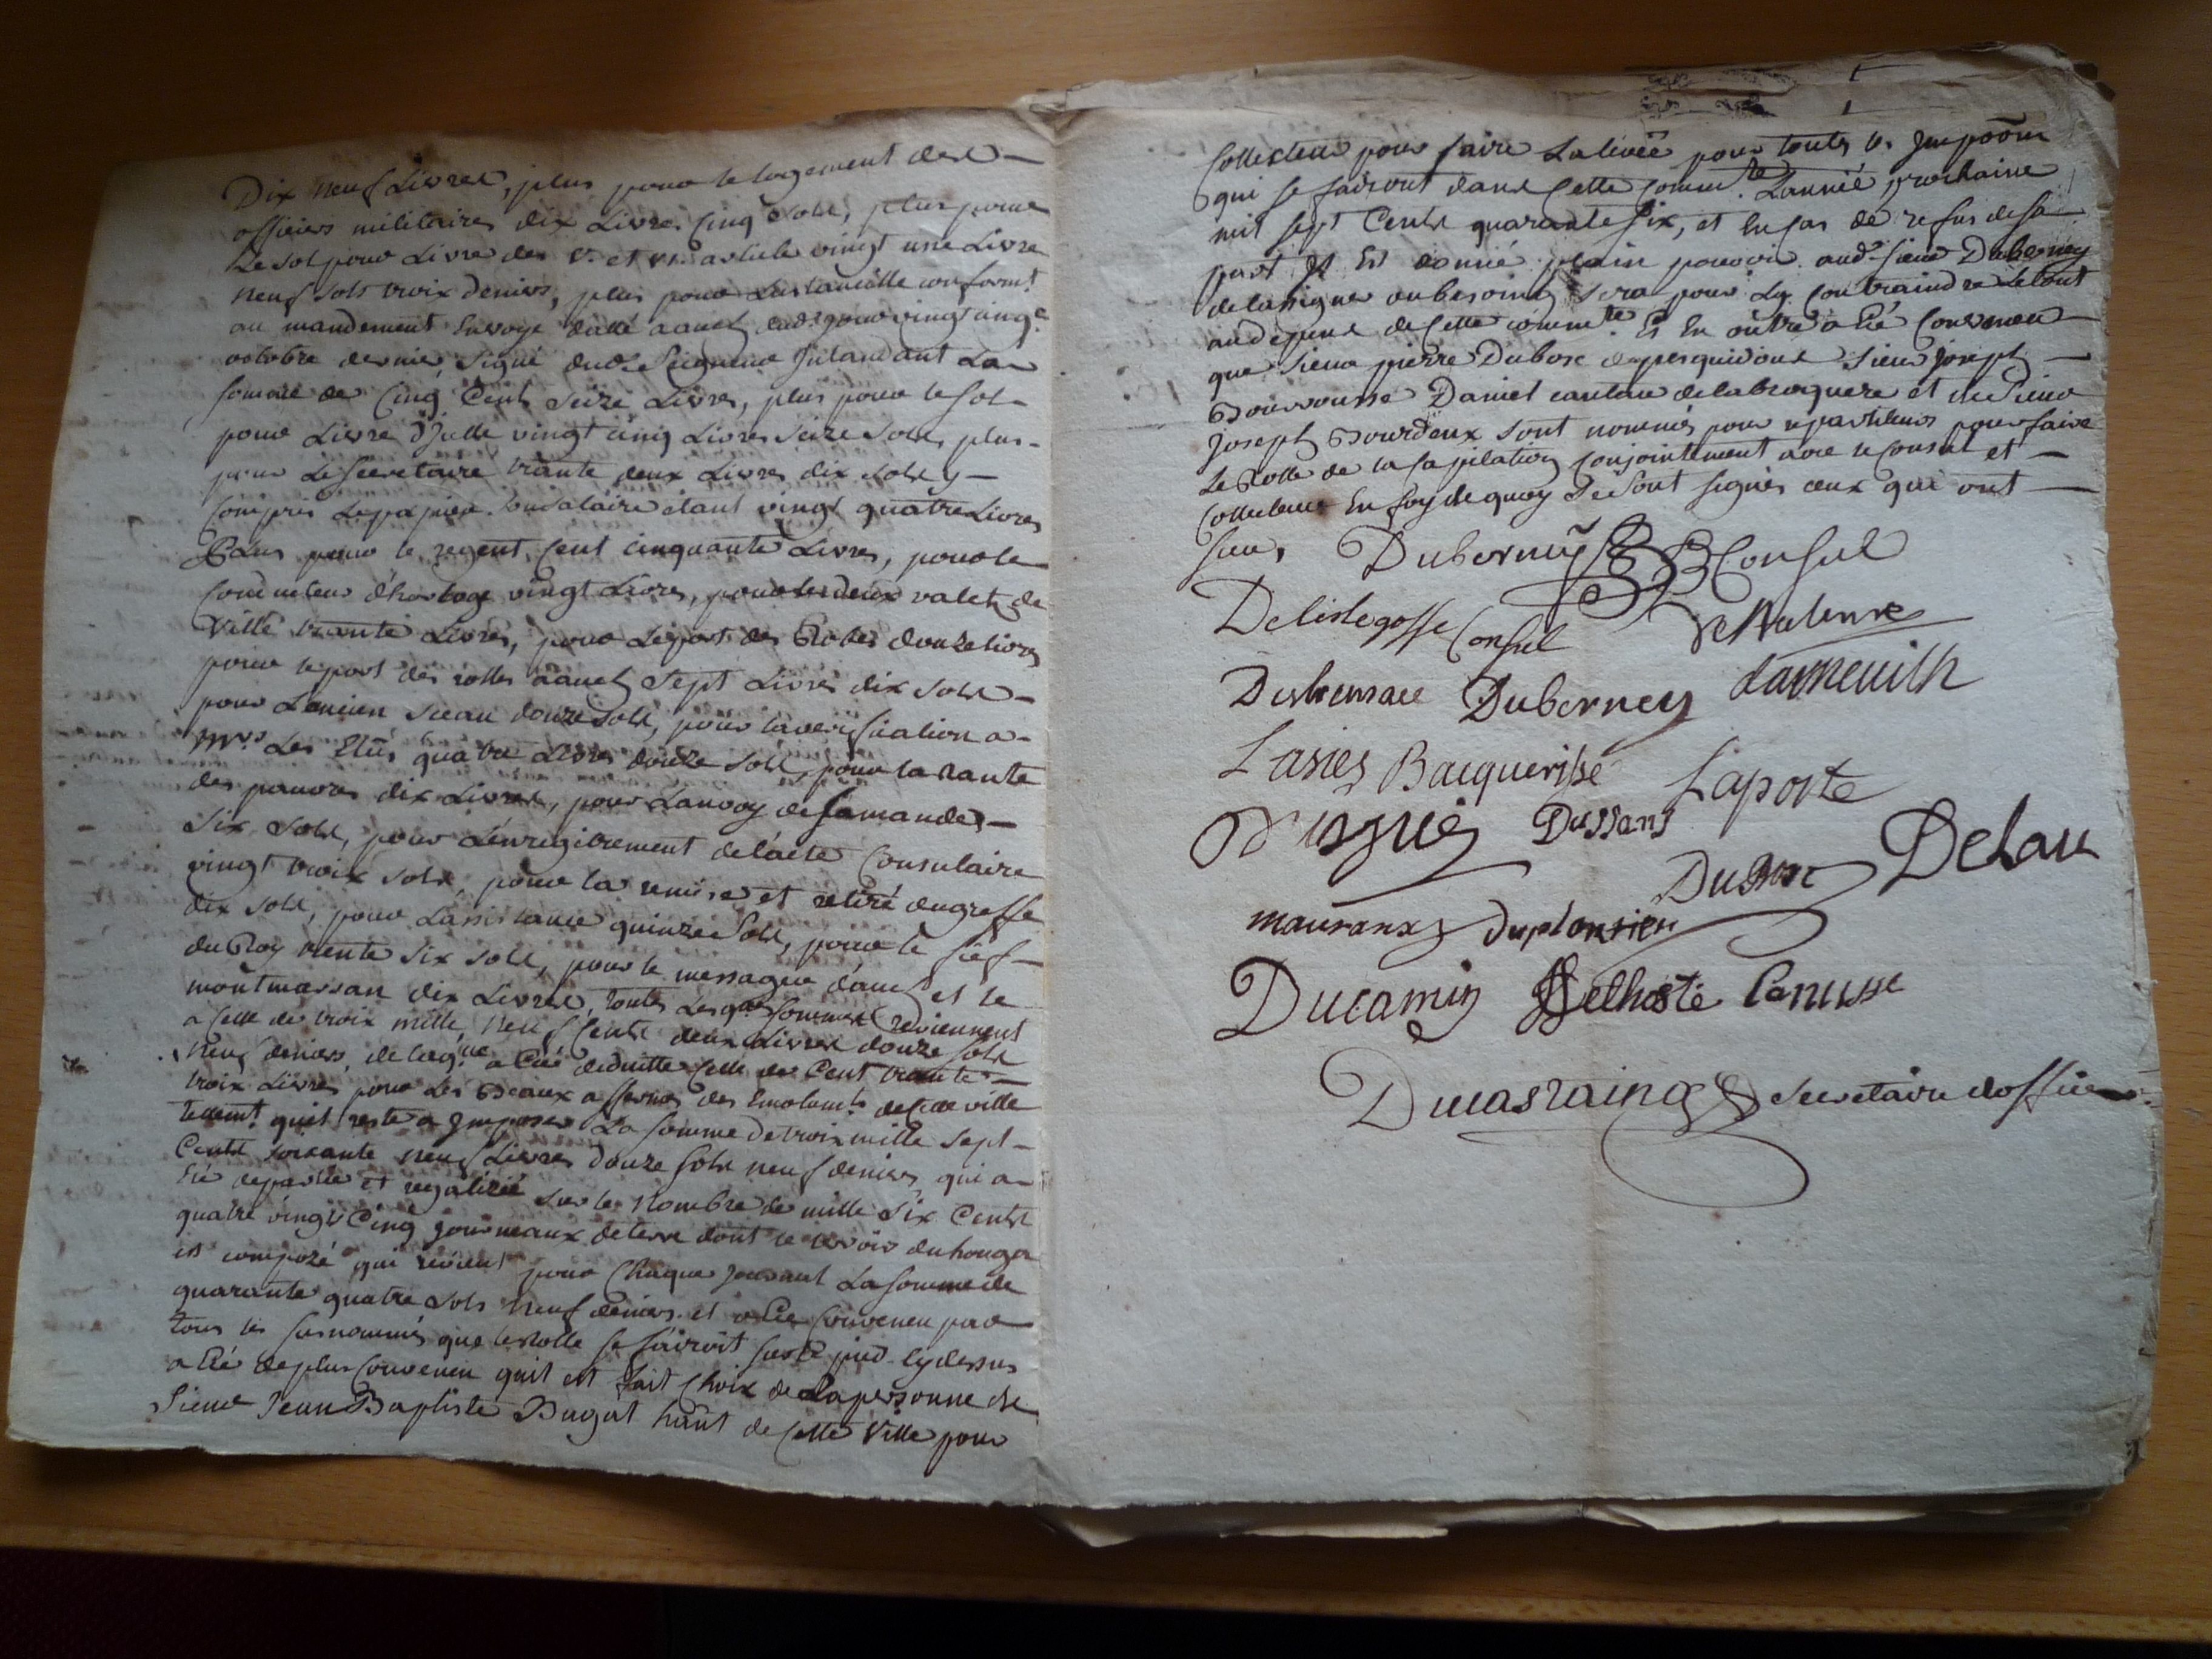 Dix neuf Livres, plus pour le logement des
officiers militaires dix Livres Cinq Sols, plus pour
Le sol pour Livre des V. et VI. article vingt une Livre
neuf sols troix deniers, plus pour conformt
au mandement Envoyé datté a auch du vingt cinq
octobre dernier, signé dud. Seigneur Intandant La
somme de Cinq Cents Seize Livres, plus pour le sol
pour Livre D'Jcelle vingt cinq Livres Seize Sols, plus
pour Le secretaire trante deux Livres dix sols y
compris Le papier Son Salaire étant vingt quatre Livres
Plus pour le regent Cent cinquante Livres, pour le
conducteur d'horloge vingt Livres, pour les deux valets de
Ville trante Livres, pour Le port des Robes douze livres
pour le port des rolles a auch Sept Livres dix Sols
pour L'ancien sceau douze Sols, pour la veriffication a
Mrs. Les Elus quatre Livres douze Sols, pour la rante
des pauvres dix Livres, pour Lanvoy de Samandes
Six Sols, pour Lenregitrement de l'acte Consulaire
vingt troix Sols, pour la remise et retiré du greffe
dix Sols, pour Lassistance quinze Sols, pour le fief
du Roy trente six sols, pour le messager d'auch et le
montmarsan dix Livres, toutes Lesqes sommes reviennent
a Celle de troix mille neuf Cents deux Livres douze Sols
neuf deniers, de laqe. a Eté deduitte Celle de Cent trante
troix Livres pour Les Beaux a fermes des Emolumts. de Cette ville
tellemt. quil reste a Jmposer La Somme de troix mille Sept
Cents soixante neuf Livres douze Sols neuf deniers qui a
Eté departie et regalizée sur le Nombre de mille Six Cents
quatre vingt Cinq journeaux de terre dont le terroir du houga
est composé qui revient pour Chaque Journal La Somme de
quarante quatre Sols neuf deniers. et a Eté Convenu par
tous les susnommés que le Rolle se fairoit sur le pied Cy dessus
a Eté de plus Convenu quil est fait Choix de La personne de
Sieur Jean Baptiste Dugat hant de Cette Ville pour
Collecteur pour faire La livée pour toutes les Jmpoõns
qui se fairont dans Cette Commté. L'année prochaine
mil sept Cents quarante Six, et En cas de refus de sa
part Il Est donné plain pouvoir aud. Sieur Duberney
de lassigner au besoing sera pour Ly Contraindre Le tout
au depens de Cette commté. Et En outre a Eté Convenu
que Sieur pierre Dubosc desperquidous Sieur Joseph
Bourrousse Daniel cantau de labroquere et
Joseph Bourdeux sont nommés pour repartiteurs pour faire
Le Rolle de la Capitation conjointement avec le Consul et
Collecteur En foy de quoy Se Sont signés ceux qui ont
sceu,
Duberney Consul
Delislegosse Consul
Destrensau Duberney Lameuilh
Lasies Bacquerisse Laporte
Dussans
Dubosc DeLau
mauranx Duplantier
Ducamin Delhoste Canusse
Ducasraing secretaire d'office